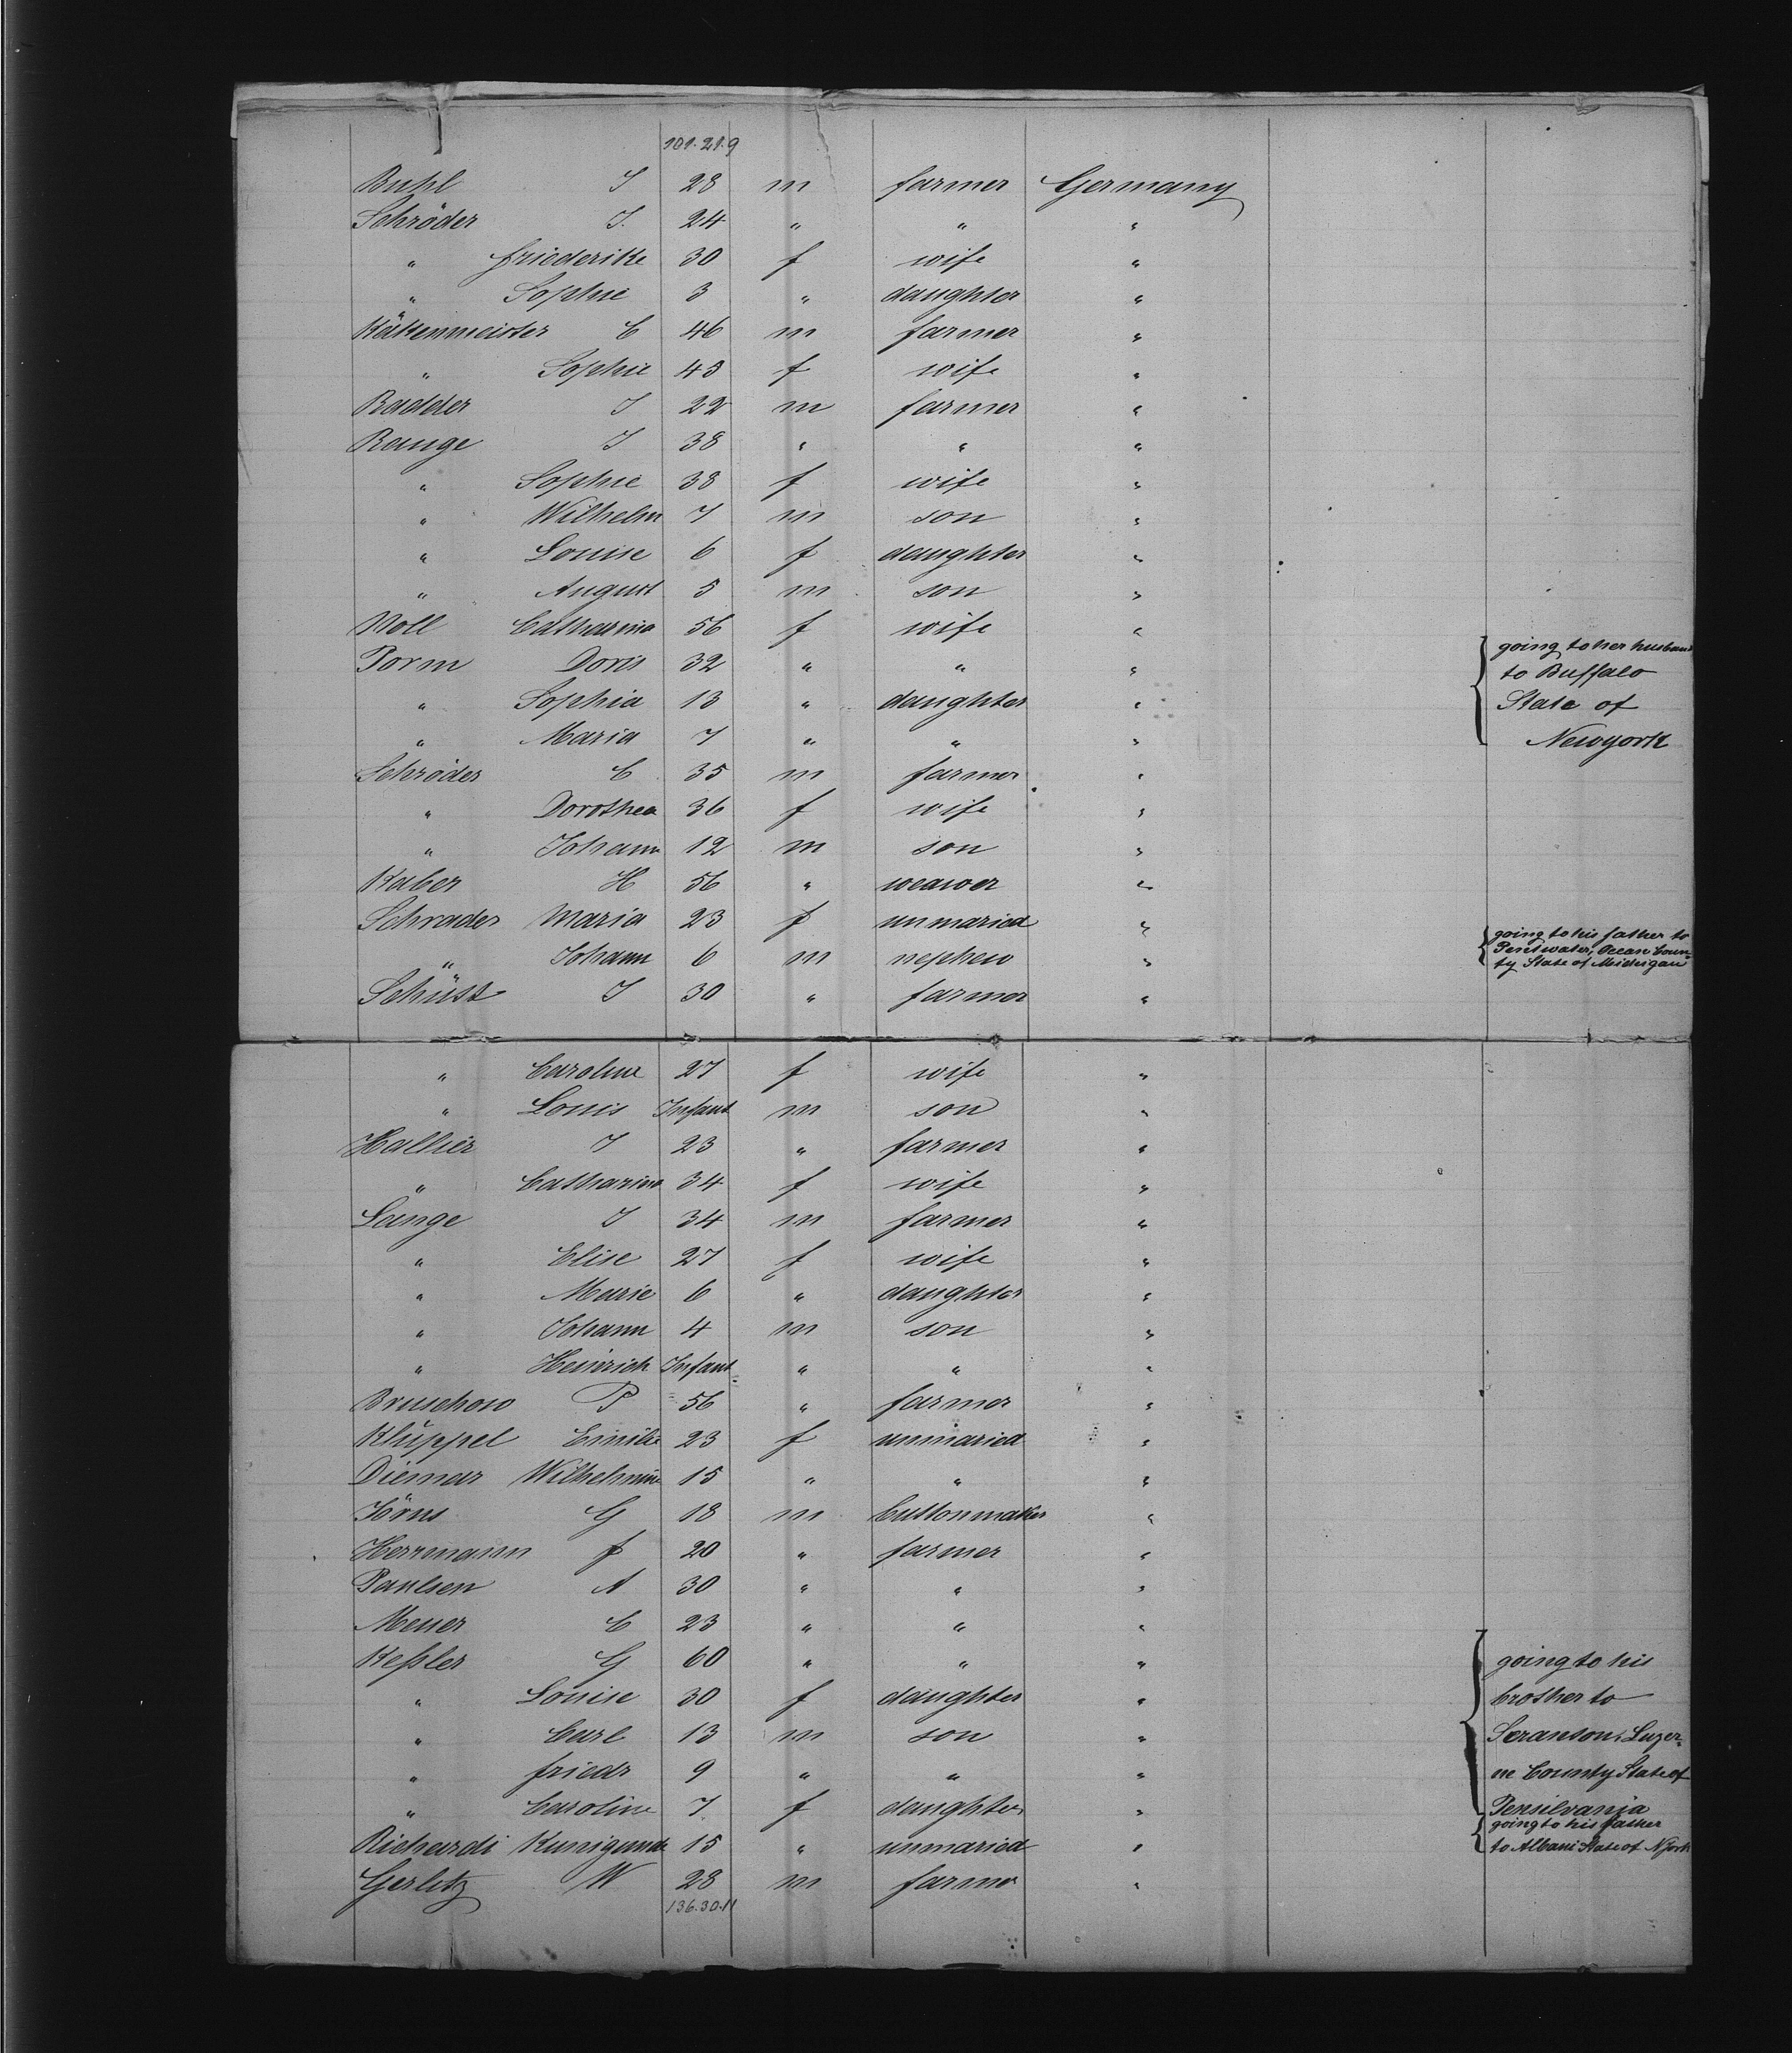 101. 21. 9
Buhl J 28 m farmer Germany
Schröder J. 24 " " "
" Friederike 30 f wife "
" Sophie 3 " daughter "
Käkenmeister C 46 m farmer "
" Sophie 43 f wife "
Badder J 22 m farmer "
Range J 38 " " "
" Sophie 38 f wife "
" Wilhelm 7 m son "
" Louise 6 f daughter "
" August 5 m son "
Moll Catharina 56 f wife "
Porm Doris 32 " " " going to her husband
" Sophia 13 " daughter " to Buffalo
" Maria 7 " " " State of
Newyork
Schröder C 35 m farmer "
" Dorothea 36 f wife "
" Johann 12 m son "
Kaber H 56 " weawer "
Schrader Maria 23 f unmaried "
" Johann 6 m nephew " going to his father to
Pentwater, Ocean Coun-
ty State of Michigan
Schüst J 30 " farmer "
" Caroline 27 f wife "
" Louis Infant m son "
Hallier J 23 " farmer "
" Catharina 34 f wife "
Lange J 34 m farmer "
" Elise 27 f wife "
" Marie 6 " daughter "
" Johann 4 m son "
" Heinrich Infant " " "
Bruschow P 56 " farmer "
Klüppel Emilie 23 f unmaried "
Diemar Wilhelmine 15 " " "
Jörns G 18 m buttonmaker "
Herrmann F 20 " farmer "
Paulsen A 30 " " "
Meuer C 23 " " "
Keßler G 60 " " " going to his
" Louise 30 f daughter " brother to
" Carl 13 m son " Scranton, Luzer-
" Friedr 9 " " " ne County State of
" Caroline 7 f daughter " Pensilvania
Richardi Kunigunde 15 " unmaried " going to his father
to Albani State of NYork
Gerlitz W 28 m farmer "
136. 30. 11